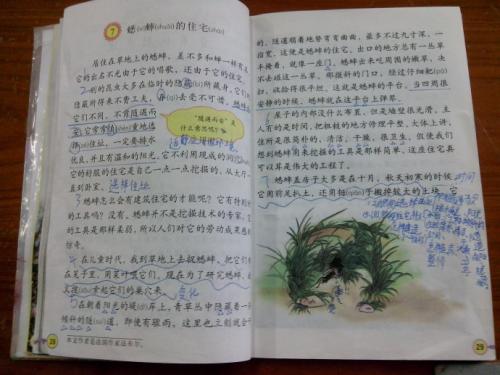 7 蟋(xī)蟀(shuài)的住宅(zhái)
居住在草地上的蟋蟀，差不多和蝉一样有名
它的出名不光由于它的唱歌，还由于它的住宅。
别的昆虫大多在临时的隐蔽(bì)所藏身。它们的
隐蔽所得来不费工夫，弃(qì)去毫不可惜。蟋蟀
它们不同，不肯随遇而
安。它常常慎重地选
择住址，一定要排水
优良，并且有温和的阳光。它不利用现成的洞
它的舒服的住宅是自己一点一点挖掘的，从大厅一
直到卧室。
“随遇而安”是
什么意思呢？
选择住址
蟋蟀怎么会有建筑住宅的才能呢？它有特别
的工具吗？没有。蟋蟀并不是挖掘技术的专家。它
的工具是那样柔弱，所以人们对它的劳动成果感到
惊奇。
在儿童时代，我到草地上去捉蟋蟀，把它们养
在笼子里，用菜叶喂它们。现在为了研究蟋蟀，我
又搜索起它们的巢穴来。
在朝着阳光的堤(dī)岸上，青草丛中隐藏着一条
倾斜的隧(suì)道，即使有骤雨，这里也立刻就会干
本文作者是法国作家法布尔。
28
的。隧道顺着地势弯弯曲曲，最多不过九寸深，一
指宽，这便是蟋蟀的住宅。出口的地方总有一丛草
半掩着，就像一座门。蟋蟀出来吃周围的嫩草，决
不去碰这一丛草。那微斜的门口，经过仔细耙(pá)
扫，收拾得很平坦。这就是蟋蟀的平台。当四周很
安静的时候，蟋蟀就在这平台上弹琴。
屋子的内部没什么布置，但是墙壁很光滑。主
人有的是时间，把粗糙的地方修理平整。大体上讲，
住所是很简朴的，清洁、干燥，很卫生。假使我们
想到蟋蟀用来挖掘的工具是那样简单，这座住宅真
可以算是伟大的工程了。
蟋蟀盖房子大多是在十月，秋天初寒的时候
它用前足扒土，还用钳(qián)子搬掉较大的土块。它
时间
29